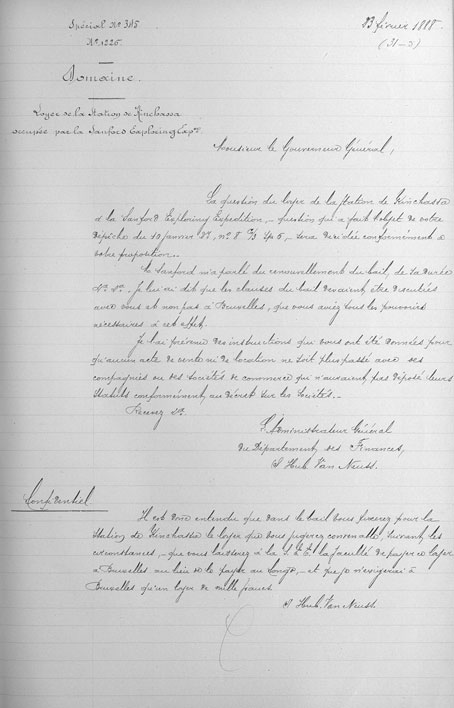 Spécial Nº 345
Nº 1226
23 février 1888
(31-3)
Domaine.
Loyer de la Station de Kinchassa
occupée par la Sanford Exploring Expon
Monsieur le Gouverneur Général,
La question du loyer de la station de Kinchassa
à la Sanford Exploring Expedition, - question qui a fait l'objet de votre
dépêche du 10 janvier nº 8 - sera décidée conformément à
votre proposition.
M. Sanford m'a parlé du renouvellement du bail, de sa durée
&a. &a. Je lui ai dit que les clauses du bail devaient être discutées
avec vous et non pas à Bruxelles, que vous aviez tous les pouvoirs
nécessaires à cet effet.
Je l'ai prévenu des instructions qui vous ont été données pour
qu'aucun acte de vente ni de location ne soit plus passé avec des
compagnies ou des sociétés de commerce qui n'auraient pas déposé leurs
Statuts conformément au décret sur les Sociétés.
Recevez &a.
L'Administrateur Général
du Département des Finances,
S Hub. Van Neuss.
Confidentiel
Il est donc entendu que dans le bail vous fixerez pour la
Station de Kinchassa le loyer que vous jugerez convenable, suivant les
circonstances, - que vous laisserez à la S.E.E. la faculté de payer ce loyer
à Bruxelles au lieu de le payer au Congo, - et que je n'exigerai à
Bruxelles qu'un loyer de mille francs.
S Hub. Van Neuss.